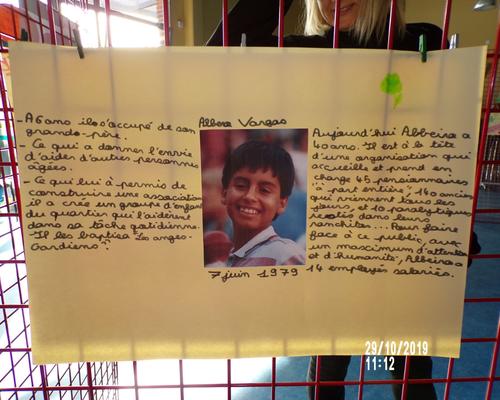 - A 6 ano il s'occupé de son
grando-père.
- Ce qui a donner l'envie
d'aider d'autres personnes
âgées.
- Ce qui lui à permis de
construire une association
il a crée un groupe d'enfants
du quartier qui l'aidèrent
dans sa tâche quotidienne.
- Il les baptisa "Les anges
Gardiens".
Albeiro Vargas
7 juin 1979
Aujourd'hui Albeiro a
40 ans. Il est à la tête
d'une organisation qui
accueille et prend en
charge 45 pensionnaires
"à part entière", 140 anciens
qui viennent tous les
jours, et 10 paralytiques
restés dans leur
ranchitas... Pour faire
face à ce public, aux
un maximum d'attention
et d'humanité, Albeiro a
14 employés salariés.
29/10/2019
11:12